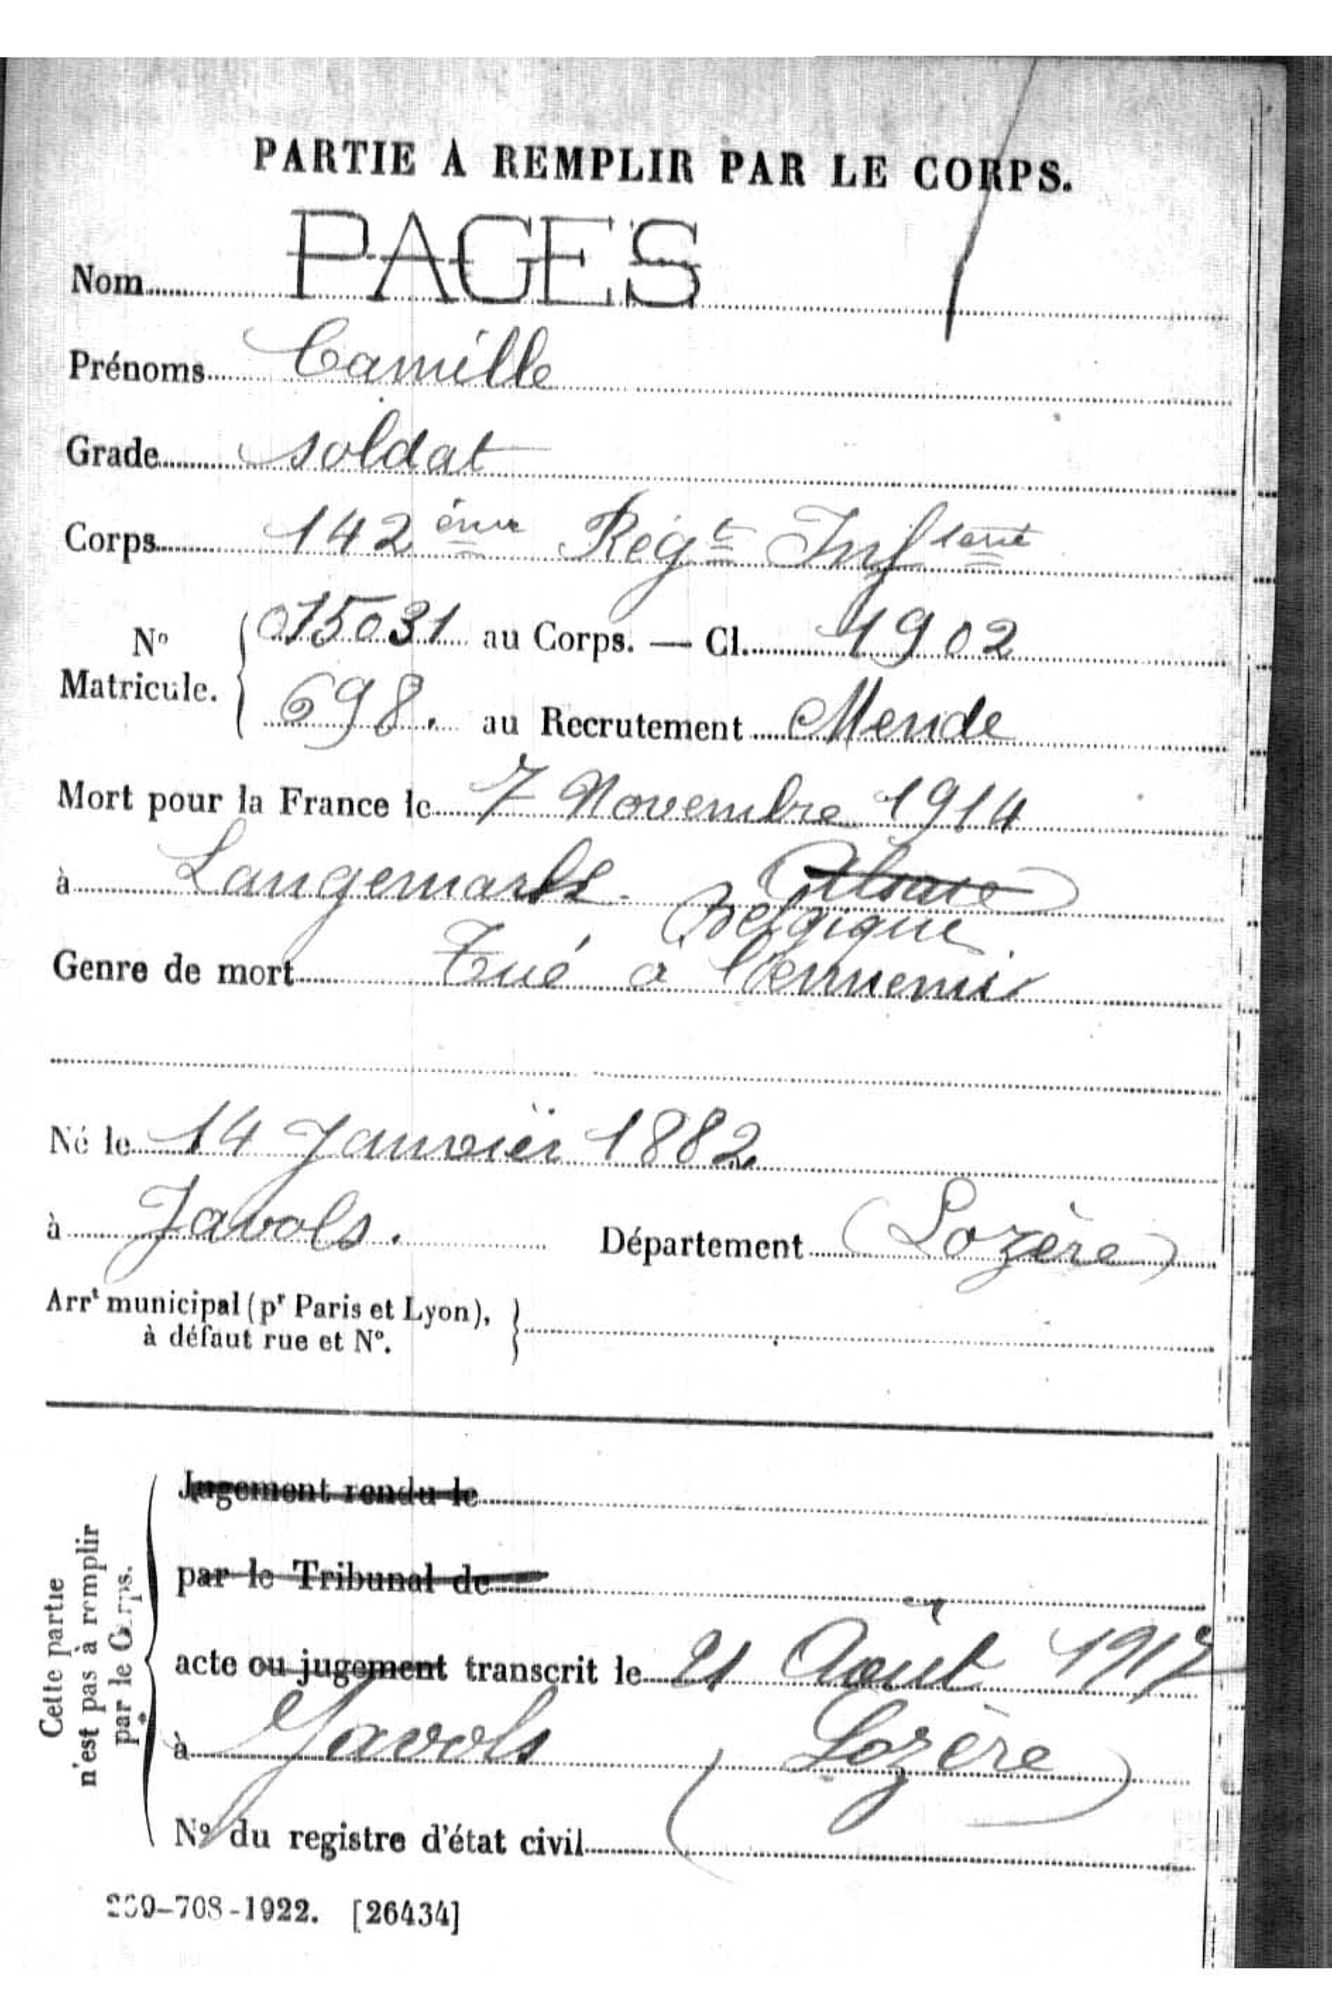 PARTIE A REMPLIR PAR LE CORPS.
Nom PAGES
Prénoms Camille
Grade soldat
Corps 142 ème Régt Infterie
No Matricule. 015031 au Corps. — Cl. 1902
698. au Recrutement Mende
Mort pour la France le 7 Novembre 1914
à Langemark. Alsace
Belgique
Genre de mort Tué à l'ennemi
Né le 14 Janvier 1882
à Javols. Département (Lozère)
Arrt municipal (pr Paris et Lyon),
à défaut rue et No.
Cette partie
n'est pas à remplir
par le Corps.
Jugement rendu le
par le Tribunal de
acte ou jugement transcrit le 21 Août 1917
à Javols (Lozère)
No du registre d'état civil
-708-1922. [26434]